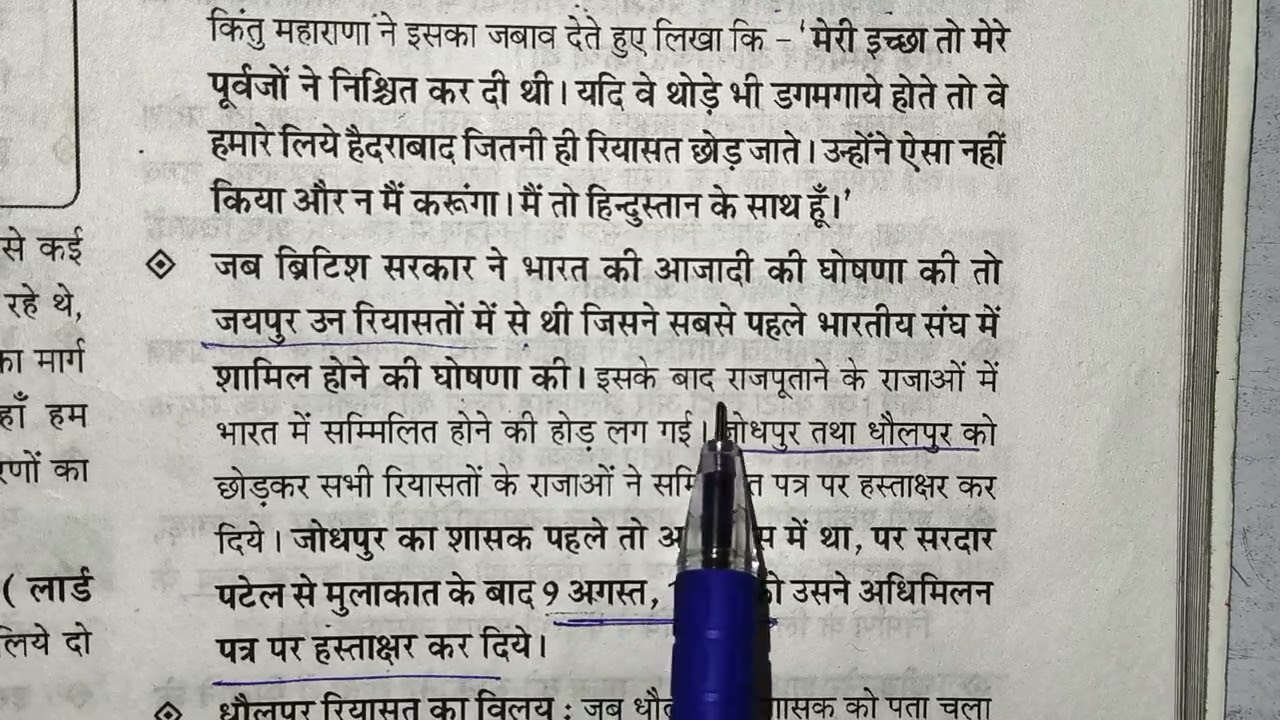 किंतु महाराणा ने इसका जबाव देते हुए लिखा कि – 'मेरी इच्छा तो मेरे
पूर्वजों ने निश्चित कर दी थी। यदि वे थोड़े भी डगमगाये होते तो वे
हमारे लिये हैदराबाद जितनी ही रियासत छोड़ जाते। उन्होंने ऐसा नहीं
किया और न मैं करूंगा। मैं तो हिन्दुस्तान के साथ हूँ।'
जब ब्रिटिश सरकार ने भारत की आजादी की घोषणा की तो
जयपुर उन रियासतों में से थी जिसने सबसे पहले भारतीय संघ में
शामिल होने की घोषणा की। इसके बाद राजपूताने के राजाओं में
भारत में सम्मिलित होने की होड़ लग गई। जोधपुर तथा धौलपुर को
छोड़कर सभी रियासतों के राजाओं ने पत्र पर हस्ताक्षर कर
दिये। जोधपुर का शासक पहले तो में था, पर सरदार
पटेल से मुलाकात के बाद 9 अगस्त, को उसने अधिमिलन
पत्र पर हस्ताक्षर कर दिये।
धौलपुर रियासत का विलय : जब शासक को पता चला
से कई
रहे थे,
का मार्ग
हाँ हम
रणों का
( लार्ड
लिये दो